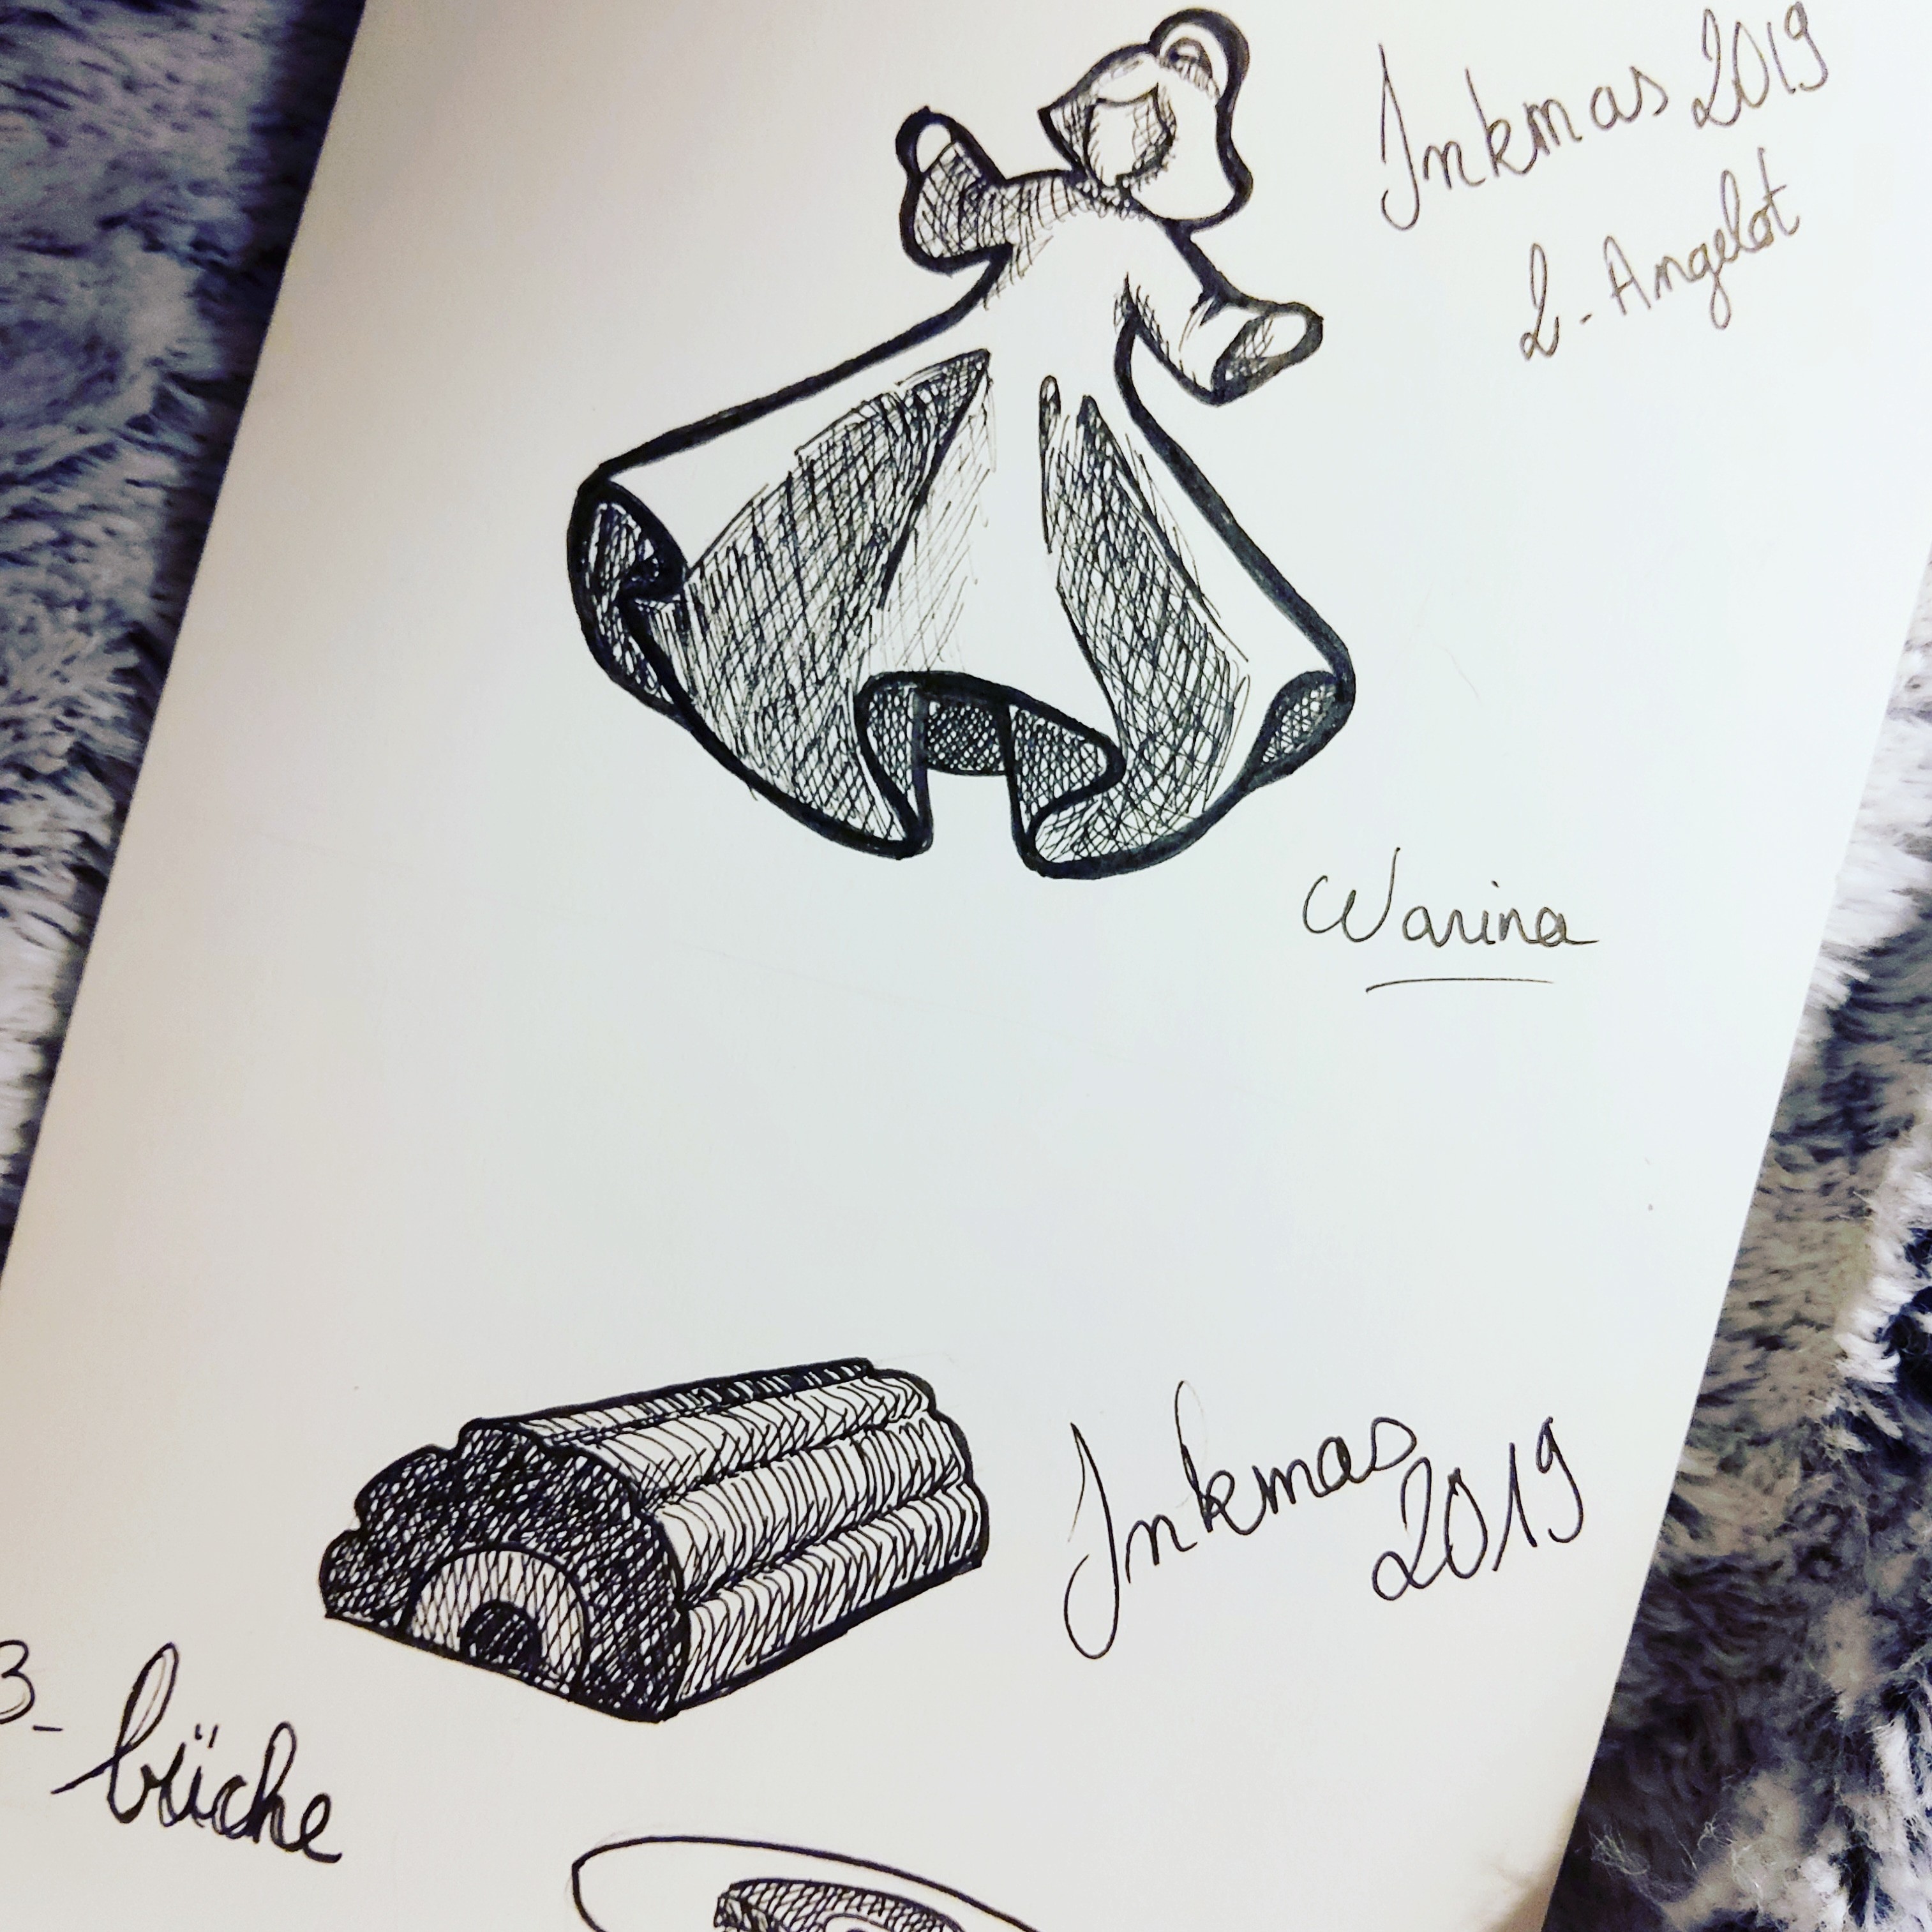 Inkmas 2019
2-Angelot
Warina
Inkmas
2019
3-
büche